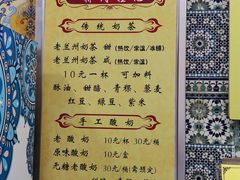 传统奶茶
老兰州奶茶 甜(热饮/常温/冰镇)
老兰州奶茶 咸(热饮/常温)
10元一杯 可加料
酥油、甜醅、青稞、葱麦
红豆、绿豆、紫米
手工酸奶
老酸奶 10元/杯 30元/桶
原味酸奶 10元/盒
无糖老酸奶 30元/桶(需预定)